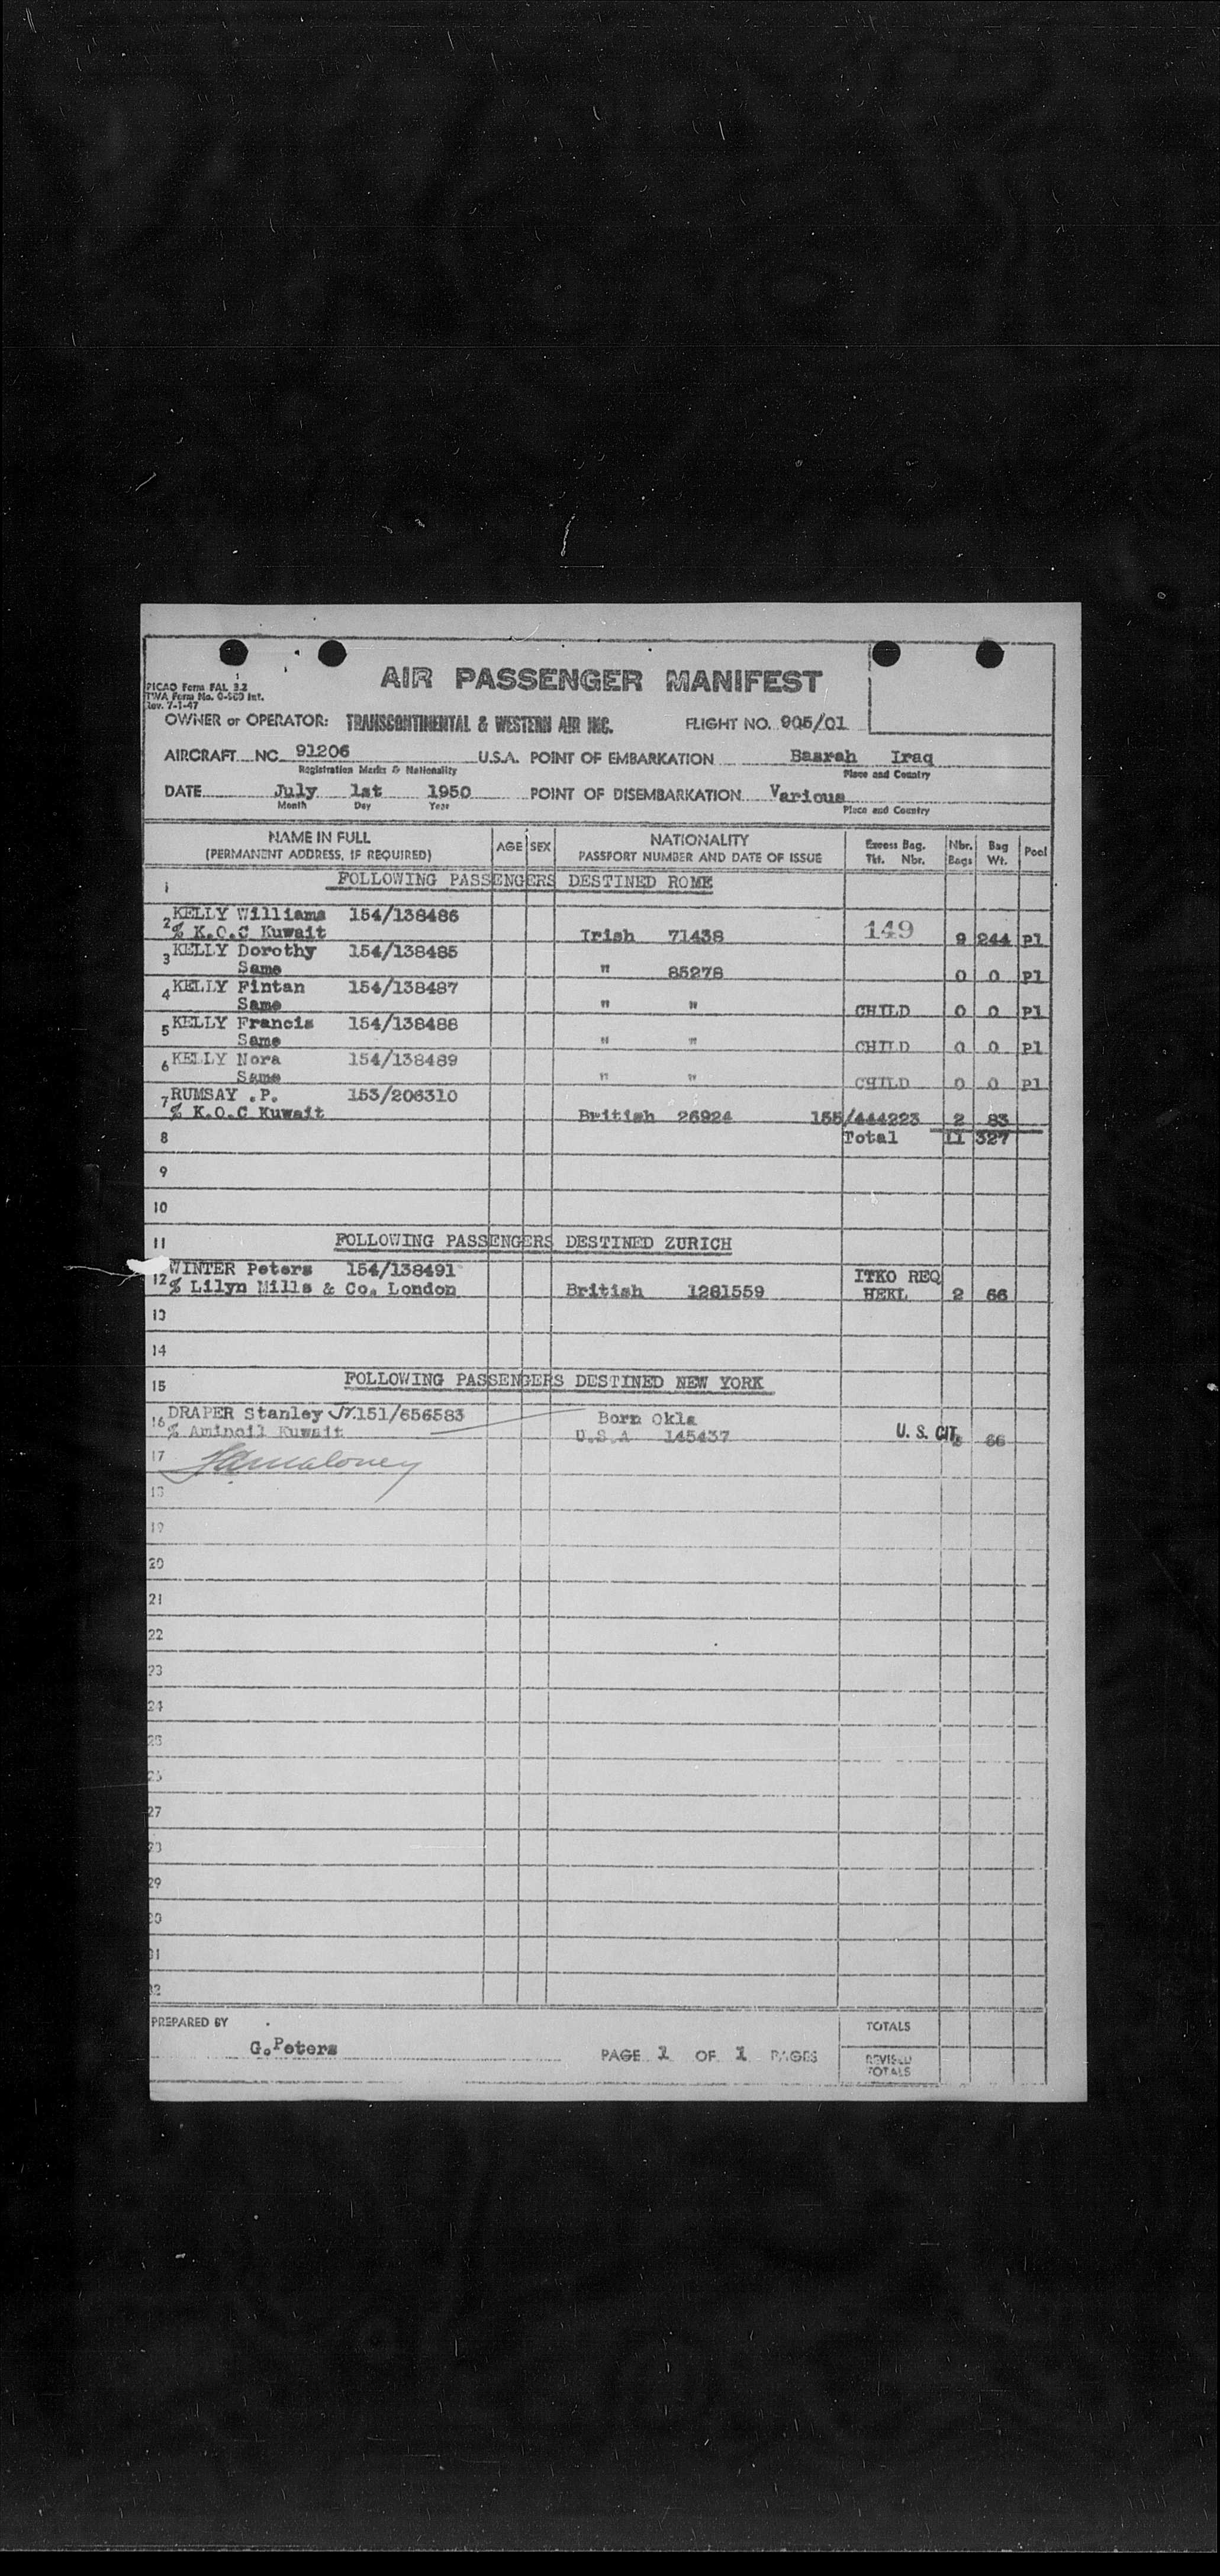 AIR PASSENGER MANIFEST
PICAO Form FAL 3.2
TWA Form No. 0-560 Int.
Rev. 7-1-47
OWNER or OPERATOR: TRANSCONTINENTAL & WESTERN AIR INC. FLIGHT NO. 905/01
AIRCRAFT NC 91206 U.S.A. POINT OF EMBARKATION Basrah Iraq
Registration Marks & Nationality Place and Country
DATE July 1st 1950 POINT OF DISEMBARKATION Various
Month Day Year Place and Country
NAME IN FULL (PERMANENT ADDRESS, IF REQUIRED) AGE SEX NATIONALITY PASSPORT NUMBER AND DATE OF ISSUE Excess Bag. Tkt. Nbr. Nbr. Bags Bag Wt. Pool
1 FOLLOWING PASSENGERS DESTINED ROME
2 KELLY Williams 154/138486
% K.O.C Kuwait Irish 71438 149 9 244 Pl
3 KELLY Dorothy 154/138485
Same " 85278 0 0 Pl
4 KELLY Fintan 154/138487
Same " " CHILD 0 0 Pl
5 KELLY Francis 154/138488
Same " " CHILD 0 0 Pl
6 KELLY Nora 154/138489
Same " " CHILD 0 0 Pl
7 RUMSAY .P. 153/206310
% K.O.C Kuwait British 26924 155/444223 2 83
8 Total 11 327
9
10
11 FOLLOWING PASSENGERS DESTINED ZURICH
WINTER Peters 154/138491 ITKO REQ
12 % Lilyn Mills & Co. London British 1281559 HEKL 2 66
13
14
15 FOLLOWING PASSENGERS DESTINED NEW YORK
16 DRAPER Stanley Jr. 151/656583 Born Okla
% Aminoil Kuwait U.S.A 145437 U. S. CIT. 66
17
18
19
20
21
22
23
24
25
26
27
28
29
30
31
32
PREPARED BY TOTALS
G.Peters PAGE 1 OF 1 PAGES REVISED TOTALS